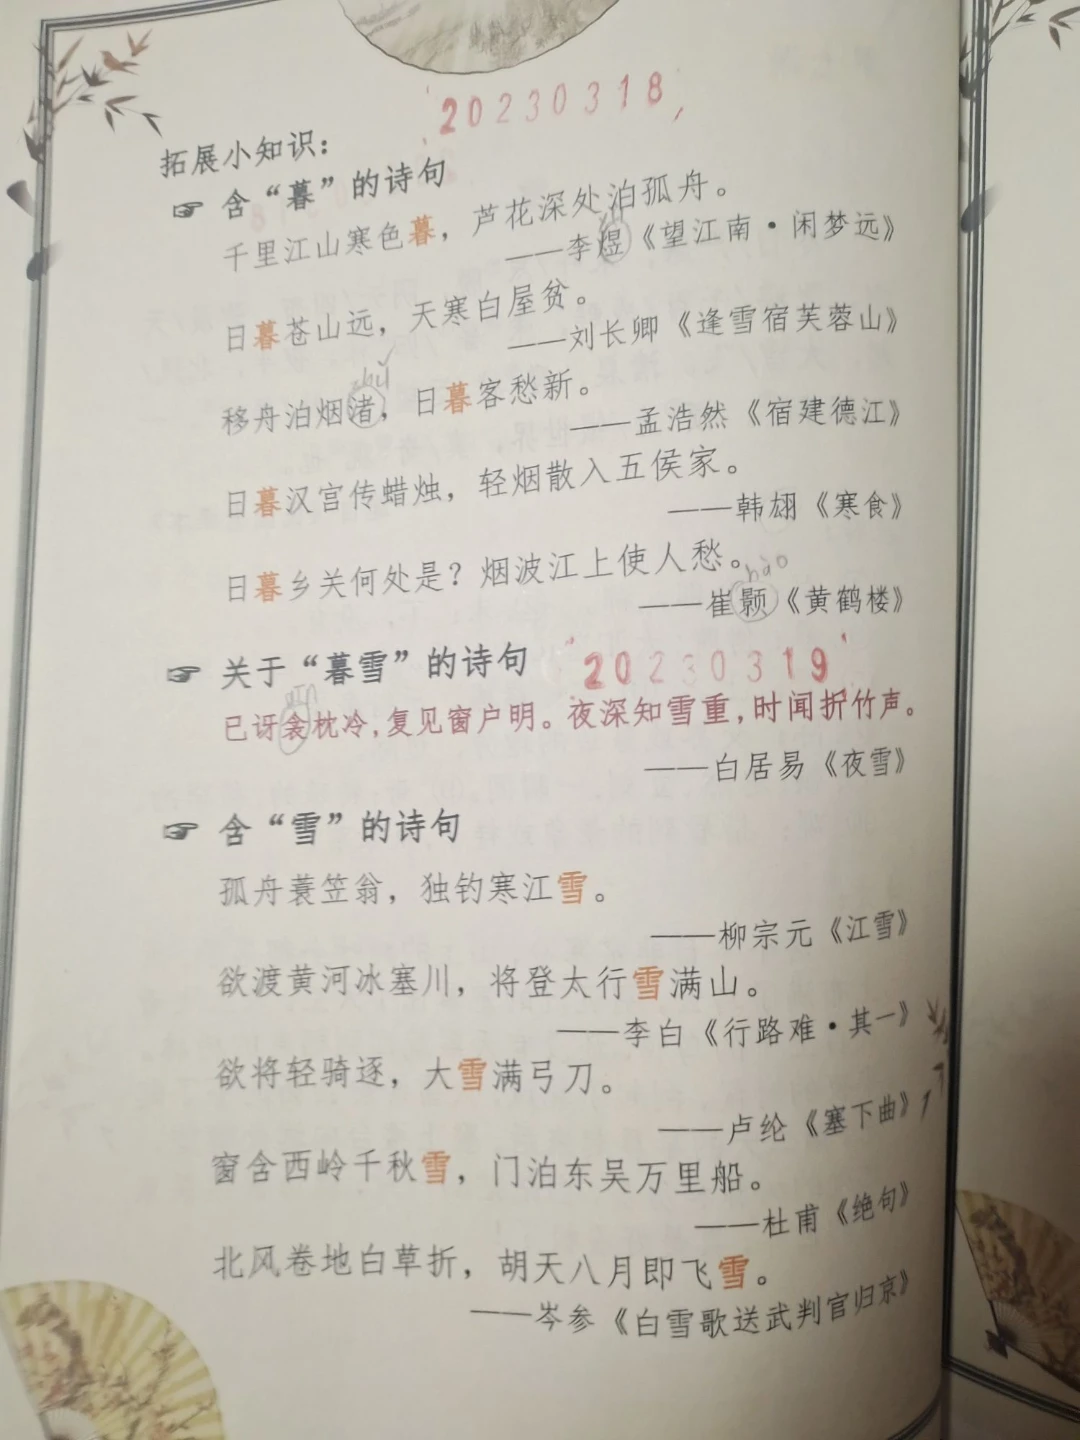 20230318
拓展小知识：
☞ 含“暮”的诗句
千里江山寒色暮，芦花深处泊孤舟。
——李煜《望江南·闲梦远》
日暮苍山远，天寒白屋贫。
——刘长卿《逢雪宿芙蓉山》
zhǔ
移舟泊烟渚，日暮客愁新。
——孟浩然《宿建德江》
日暮汉宫传蜡烛，轻烟散入五侯家。
——韩翃《寒食》
日暮乡关何处是？烟波江上使人愁。
hào
——崔颢《黄鹤楼》
☞ 关于“暮雪”的诗句
20230319
qīn
已讶衾枕冷，复见窗户明。夜深知雪重，时闻折竹声。
——白居易《夜雪》
☞ 含“雪”的诗句
孤舟蓑笠翁，独钓寒江雪。
——柳宗元《江雪》
欲渡黄河冰塞川，将登太行雪满山。
——李白《行路难·其一》
欲将轻骑逐，大雪满弓刀。
——卢纶《塞下曲》
窗含西岭千秋雪，门泊东吴万里船。
——杜甫《绝句》
北风卷地白草折，胡天八月即飞雪。
——岑参《白雪歌送武判官归京》